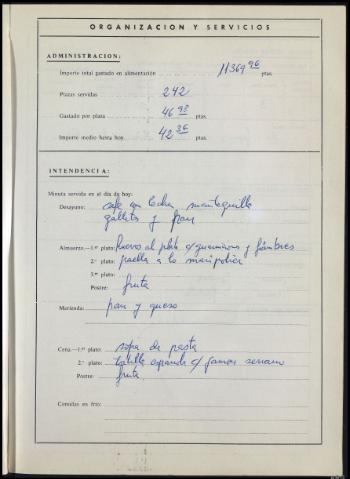 ORGANIZACION Y SERVICIOS
ADMINISTRACION:
Importe total gastado en alimentación 11369 96 ptas.
Plazas servidas 242
Gastado por plaza 46 98 ptas.
Importe medio hasta hoy 42 36 ptas.
INTENDENCIA:
Minuta servida en el día de hoy:
Desayuno: café con leche, mantequilla
galletas y pan
Almuerzo.—1.er plato: huevos al plato c/ y fiambres
2.º plato: paella a la
3.er plato:
Postre: fruta
Merienda: pan y queso
Cena.—1.er plato: sopa de pasta
2.º plato: tortilla española c/ jamón serrano
Postre: fruta
Comidas en frío: